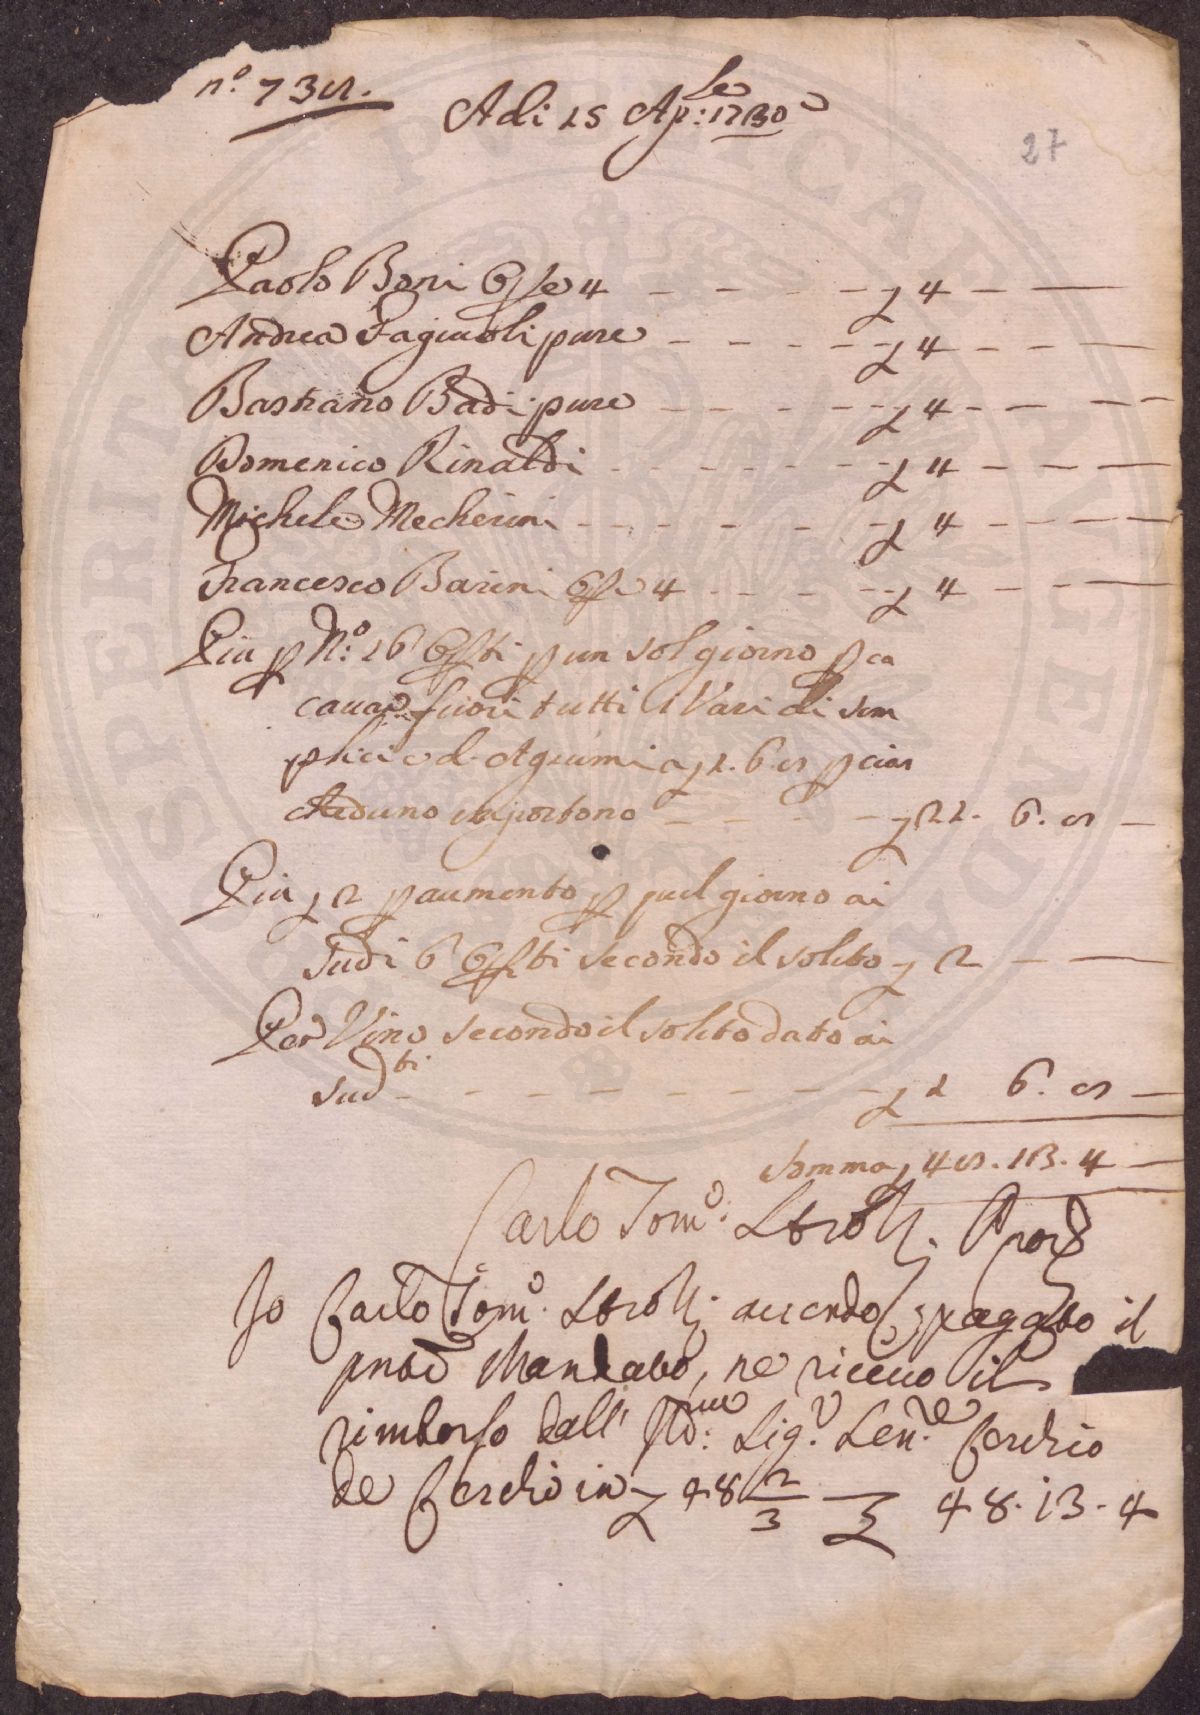 n.º 738.
Adi 15 Ap:le 1730
27
Paolo Boni Gste 4 — £ 4 —
Andrea Fagiuoli pure — £ 4 —
Bastiano Badi pure — £ 4 —
Domenico Rinaldi — £ 4 —
Michele Mecherini — £ 4 —
Francesco Barini Gste 4 — £ 4 —
Piu p N.º 16 Gsti p un sol giorno p ca
cavar fuori tutti i Vasi di sem
plici e d. Agrumi a £ 1. 6. 8 p cias
cheduno importano — £ 21. 6. 8 —
Piu £ 2 p aumento p quel giorno ai
sudi 6 Gsti secondo il solito £ 2 —
Per Vino secondo il solito dato ai
sudti — £ 1 6. 8 —
Somma £ 48. 13. 4 —
Carlo Tomº. Strozzi
Io Carlo Tomº. Strozzi avendo pagato il
pnte Mandato, ne ricevo il
rimborso dall' Sig.r Cerchio
de Cerchio in £ 48 2/3 — £ 48. 13. 4
SPERITE PVBLICAE AVGENDAE